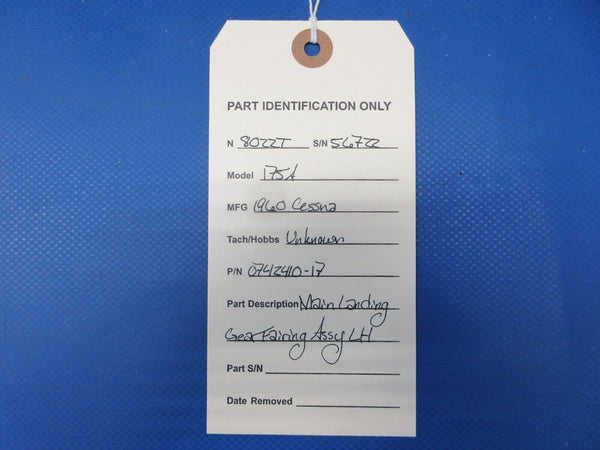 PART IDENTIFICATION ONLY
N 8022T S/N 56722
Model 175A
MFG 1960 Cessna
Tach/Hobbs Unknown
P/N 0742410-17
Part Description Main Landing
Gear Fairing Assy LH
Part S/N
Date Removed